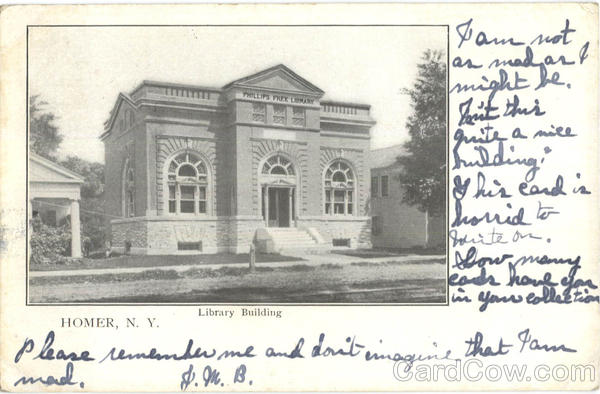 PHILLIPS FREE LIBRARY
I am not
as mad as I
might be.
Isn't this
quite a nice
building?
This card is
horrid to
write on.
How many
cards have you
in your collection
Library Building
HOMER, N. Y.
Please remember me and don't imagine that I am
mad. J. M. B.
CardCow.com